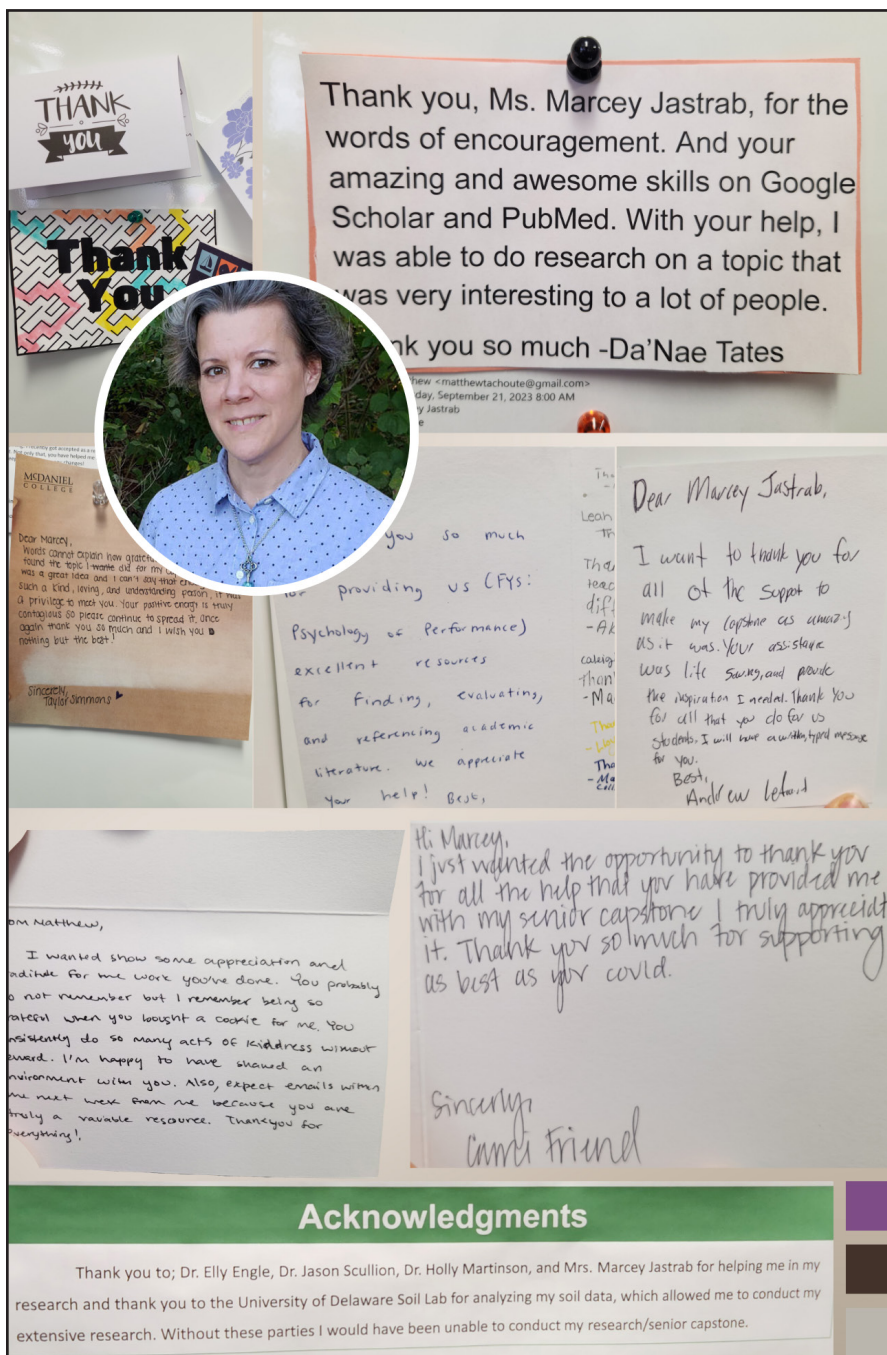 THANK
YOU
Thank
You
Thank you, Ms. Marcey Jastrab, for the
words of encouragement. And your
amazing and awesome skills on Google
Scholar and PubMed. With your help, I
was able to do research on a topic that
was very interesting to a lot of people.
you so much -Da'Nae Tates
<matthewtachoute@gmail.com>
September 21, 2023 8:00 AM
Jastrab
McDANIEL
COLLEGE
Dear Marcey,
Words cannot explain how
found the topic I did for my
was a great idea and I can't say that
such a kind, loving, and understanding person, it was
a privilege to meet you. Your positive energy is truly
contagious so please continue to spread it. Once
again thank you so much and I wish you
nothing but the best!
Sincerely,
Taylor Simmons
you so much
for providing us (FYS:
Psychology of Performance)
excellent resources
for finding, evaluating,
and referencing academic
literature. We appreciate
your help! Best,
Dear Marcey Jastrab,
I want to thank you for
all of the suppot to
make my capstone as amazing
as it was. Your assistance
was life saving, and provide
the inspiration I needed. Thank You
for all that you do for us
students. I will have a written, typed message
for you.
Best,
Andrew
Matthew,
I wanted show some appreciation and
for the work you've done. You probably
not remember but I remember being so
when you bought a cookie for me. You
do so many acts of kiddness without
I'm happy to have shared an
with you. Also, expect emails within
next week from me because you are
truly a valuable resource. Thankyou for
everything!
Hi Marcey,
I just wanted the opportunity to thank you
for all the help that you have provided me
with my senior capstone I truly
it. Thank you so much for supporting
as best as you could.
Sincerly,
Friend
Acknowledgments
Thank you to; Dr. Elly Engle, Dr. Jason Scullion, Dr. Holly Martinson, and Mrs. Marcey Jastrab for helping me in my
research and thank you to the University of Delaware Soil Lab for analyzing my soil data, which allowed me to conduct my
extensive research. Without these parties I would have been unable to conduct my research/senior capstone.